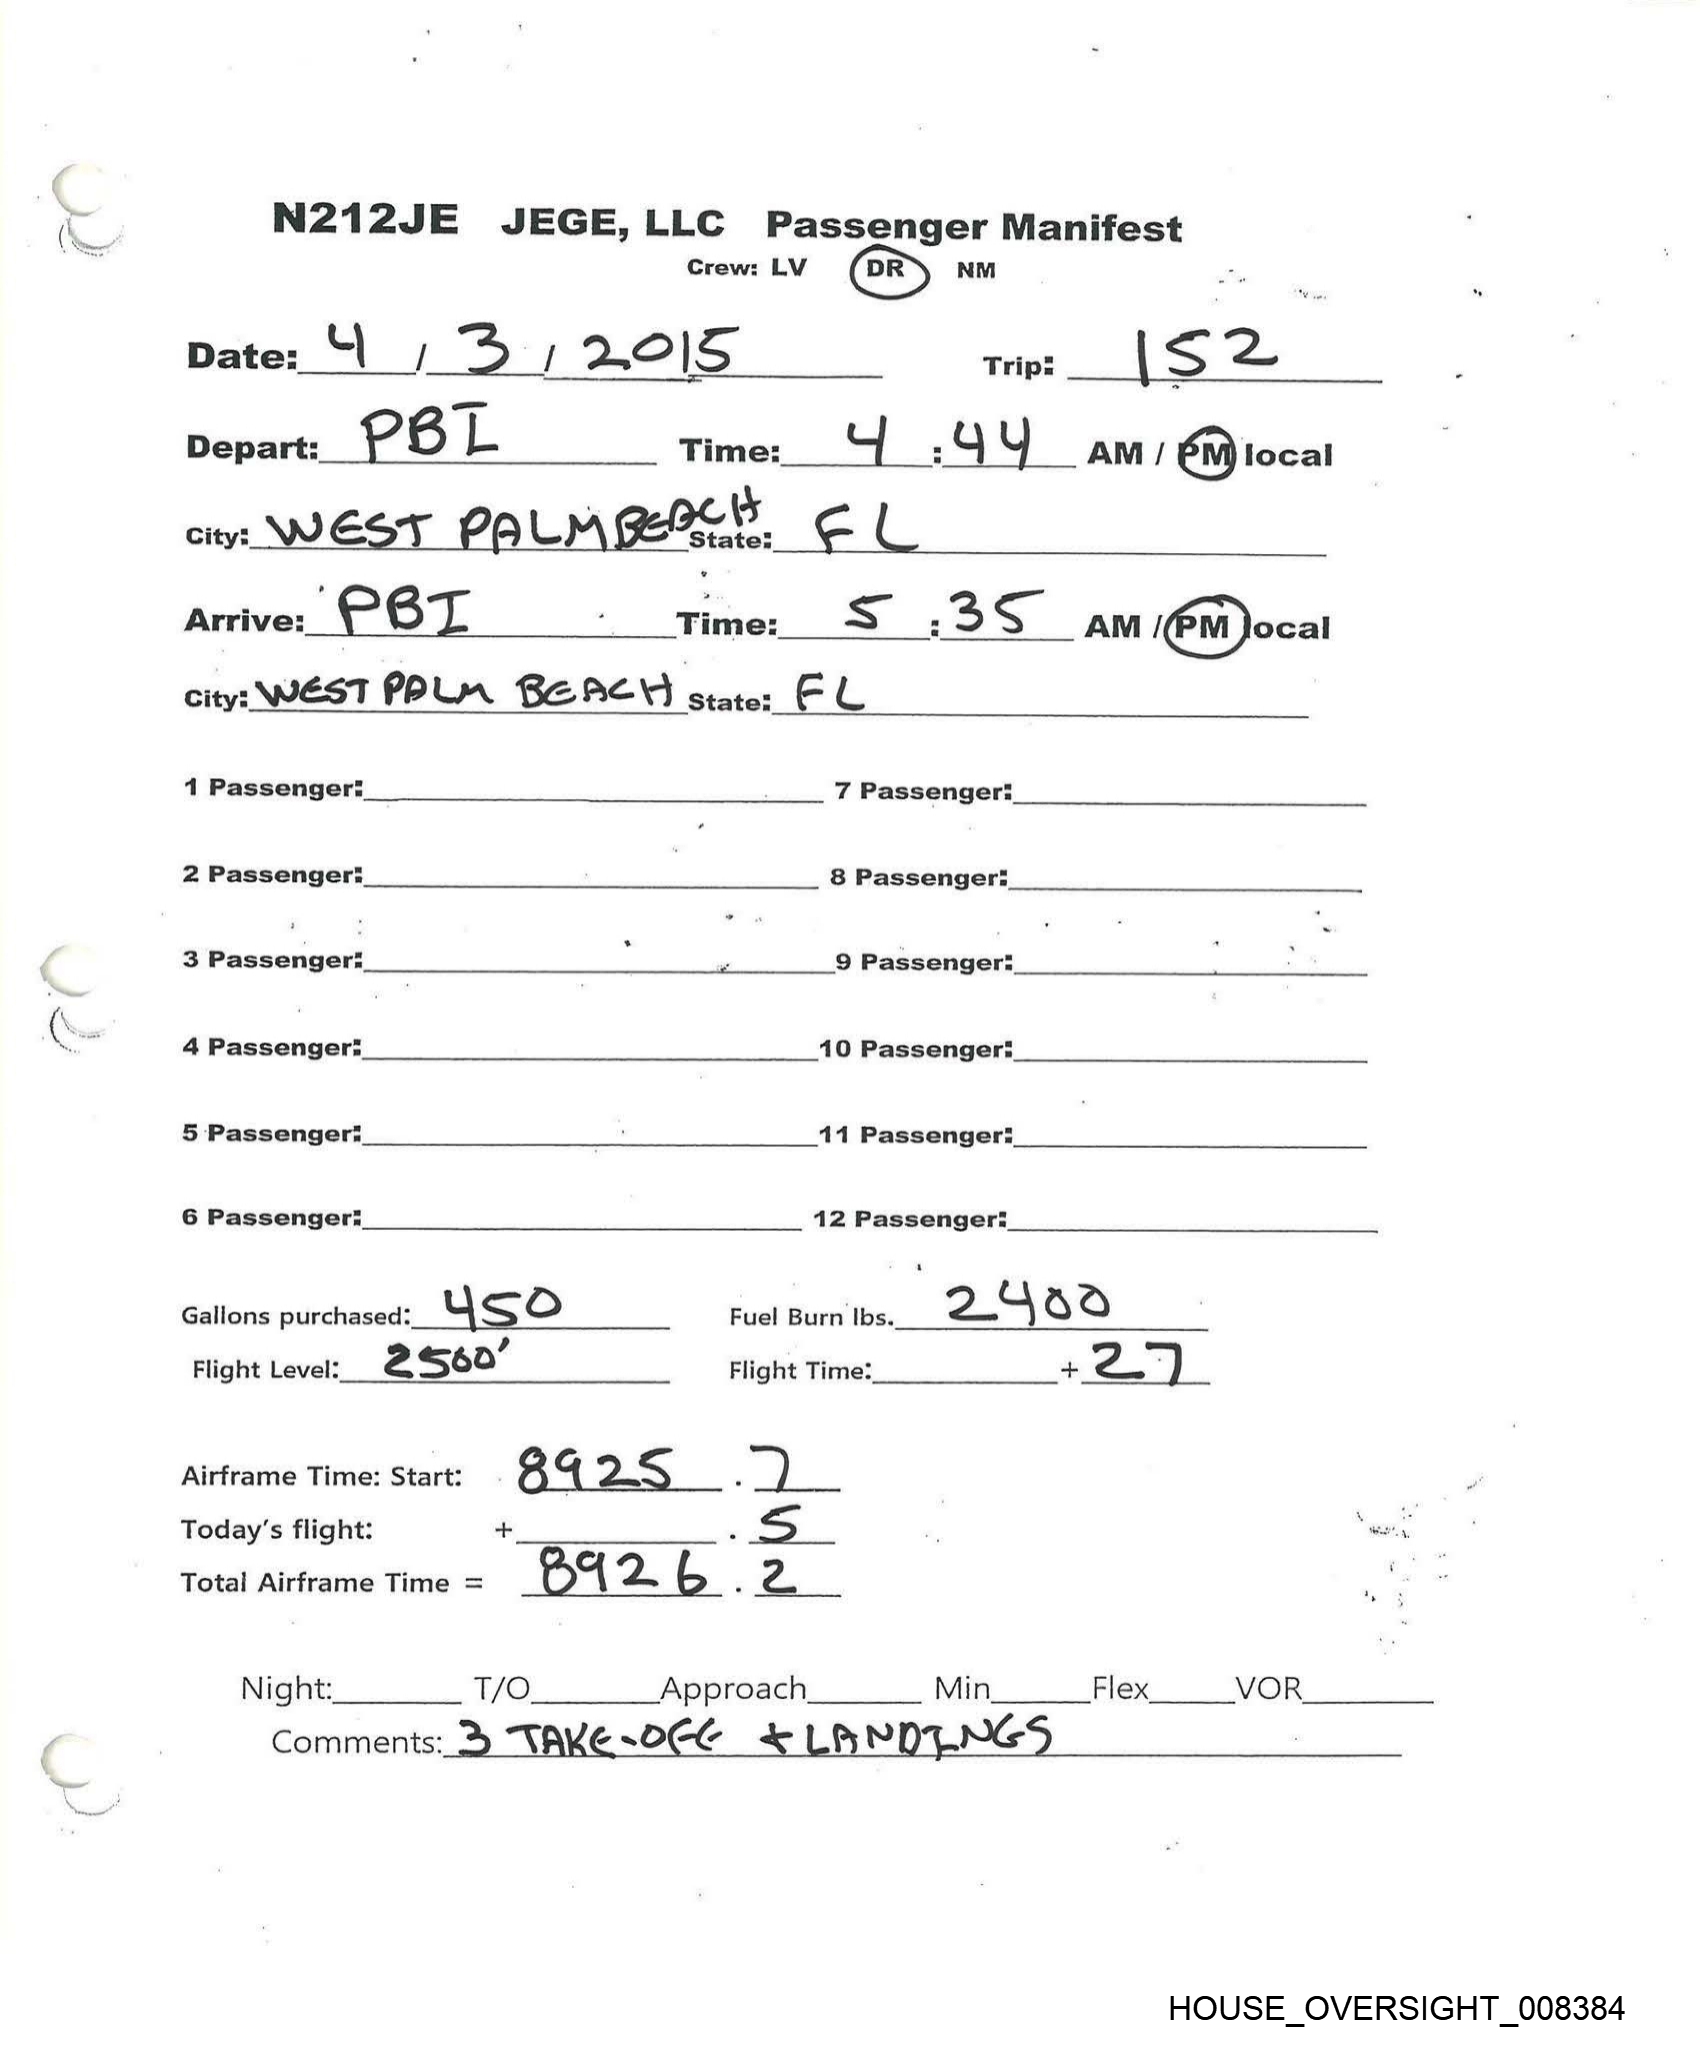 N212JE JEGE, LLC Passenger Manifest
Crew: LV DR NM
Date: 4 / 3 / 2015 Trip: 152
Depart: PBI Time: 4 : 44 AM / PM local
City: WEST PALM BEACH State: FL
Arrive: PBI Time: 5 : 35 AM / PM local
City: WEST PALM BEACH State: FL
1 Passenger: 7 Passenger:
2 Passenger: 8 Passenger:
3 Passenger: 9 Passenger:
4 Passenger: 10 Passenger:
5 Passenger: 11 Passenger:
6 Passenger: 12 Passenger:
Gallons purchased: 450 Fuel Burn lbs. 2400
Flight Level: 2500' Flight Time: + 27
Airframe Time: Start: 8925 . 7
Today's flight: + . 5
Total Airframe Time = 8926 . 2
Night: T/O Approach Min Flex VOR
Comments: 3 TAKE-OFF + LANDINGS
HOUSE_OVERSIGHT_008384